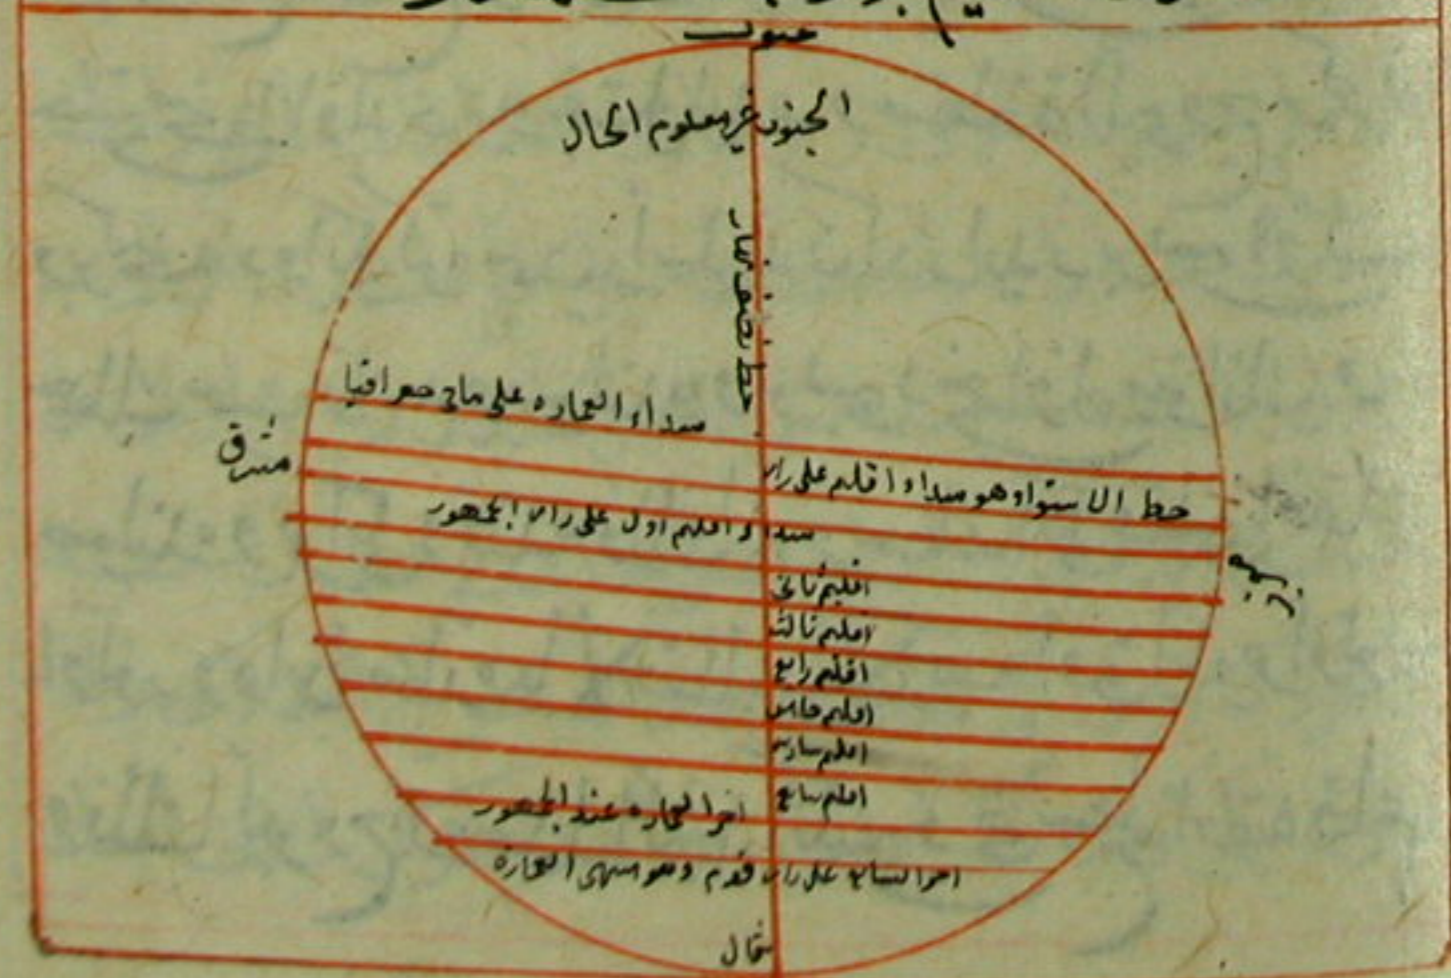 جنوب
الجنوب غير معلوم الحال
خط نصف نهار
مبداء العماره على ما في جغرافيا
مشرق
خط الاستواء وهو مبداء اقليم على راى
مبداء اقليم اول على راى الجمهور
مغرب
اقليم ثانى
اقليم ثالث
اقليم رابع
اقليم خامس
اقليم سادس
اقليم سابع
اخر العماره عند الجمهور
اخر السابع على راى قوم وهو منتهى العمارة
شمال